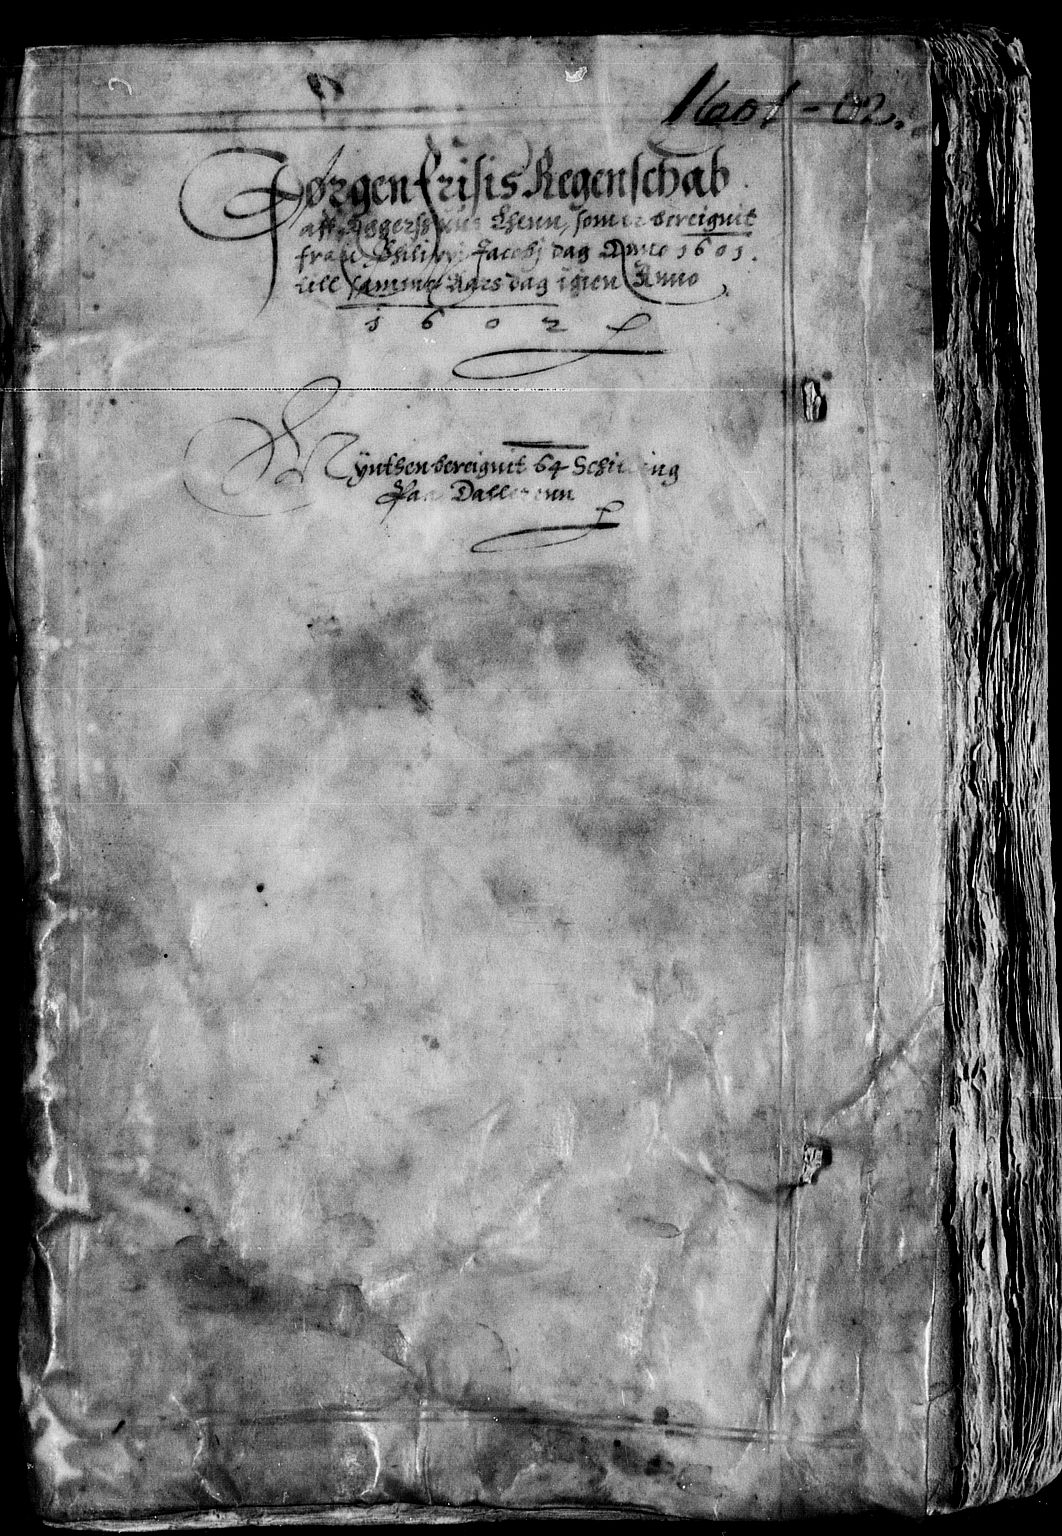 1601-02.
Jørgen Frisis Regenschab
aff Aggershuus Lhenn, som er bereignit
fraa Philippi Jacobi dag Anno 1601.
till samme Aars dag igien Anno
1602
Mynthen bereignit 64 Schilling
Paa Dallerenn